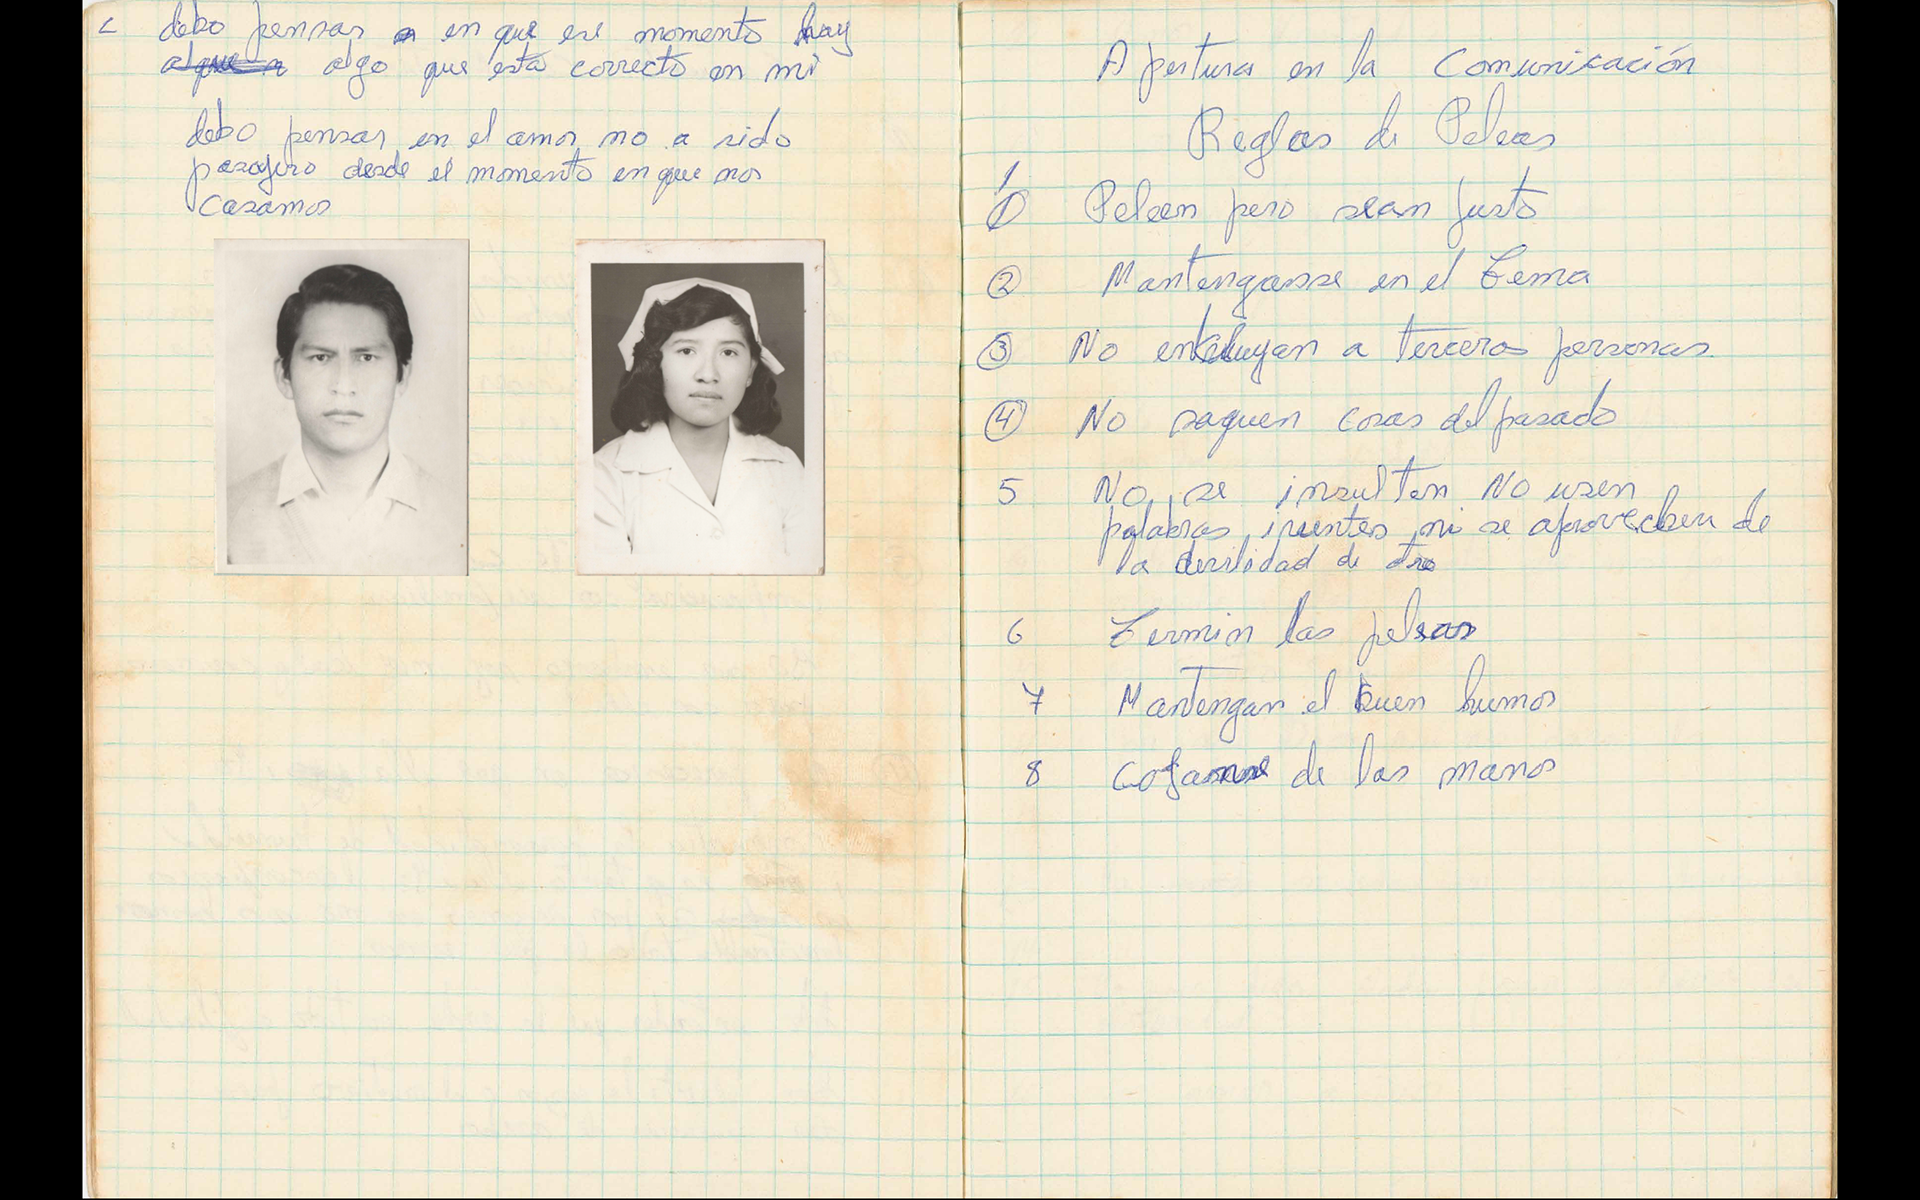 debo pensar en que ese momento hay
algo que está correcto en mi
debo pensar en el amor no a sido
pasajero desde el momento en que nos
casamos
Apertura en la Comunicación
Reglas de Peleas
1 Peleen pero sean justo
2 Mantenganse en el tema
3 No enkluyan a terceras personas
4 No saquen cosas del pasado
5 No se insulten No usen
palabras irientes ni se aprovechen de
la devilidad de otro
6 Termin las peleas
7 Mantengan el buen humor
8 Cojanse de las manos